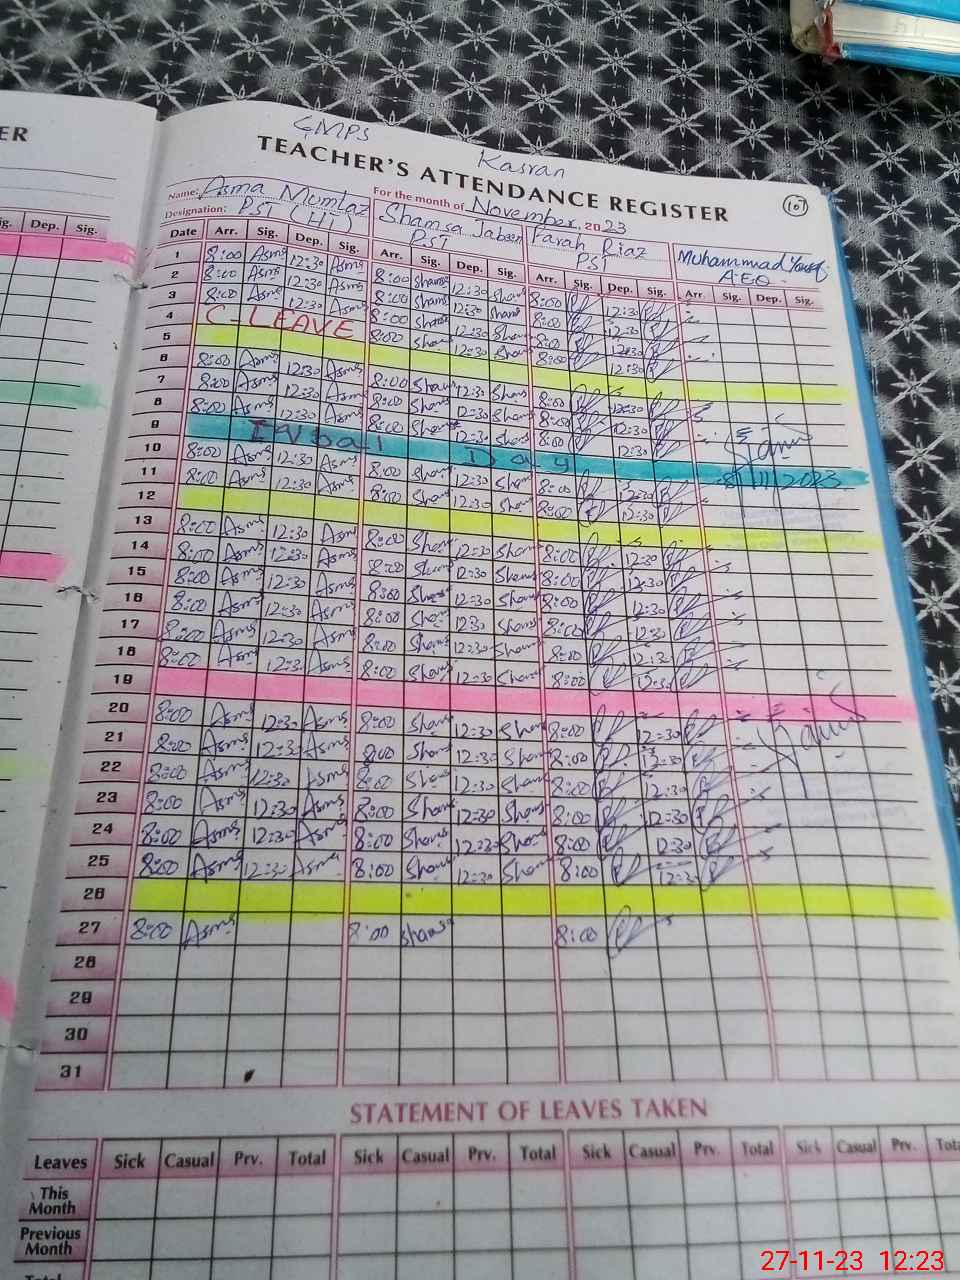 ER
GMPS
Kasran
TEACHER'S ATTENDANCE REGISTER
107
Name: Asma Mumtaz For the month of November, 2023
Designation: PST (HT) Shamsa Jabeen PST Farah Riaz PST Muhammad A.EO
ig. Dep. Sig.
Date Arr. Sig. Dep. Sig. Arr. Sig. Dep. Sig. Arr. Sig. Dep. Sig. Arr. Sig. Dep. Sig.
1 8:00 Asma 12:30 Asma 8:00 Shams 12:30 Shams 8:00 12:30
2 8:00 Asma 12:30 Asma 8:00 Shams 12:30 Shams 8:00 12:30
3 8:00 Asma 12:30 Asma 8:00 Shams 12:30 Shams 8:00 12:30
4 C-LEAVE 8:00 Shams 12:30 Shams 8:00 12:30
5
6 8:00 Asma 12:30 Asma 8:00 Shams 12:30 Shams 8:00 12:30
7 8:00 Asma 12:30 Asma 8:00 Shams 12:30 Shams 8:00 12:30
8 8:00 Asma 12:30 Asma 8:00 Shams 12:30 Shams 8:00 12:30
9 Iqbal Day
8/11/2023
10 8:00 Asma 12:30 Asma 8:00 Shams 12:30 Shams 8:00 12:30
11 8:00 Asma 12:30 Asma 8:00 Shams 12:30 Shams 8:00 12:30
12
13 8:00 Asma 12:30 Asma 8:00 Shams 12:30 Shams 8:00 12:30
14 8:00 Asma 12:30 Asma 8:00 Shams 12:30 Shams 8:00 12:30
15 8:00 Asma 12:30 Asma 8:00 Shams 12:30 Shams 8:00 12:30
16 8:00 Asma 12:30 Asma 8:00 Shams 12:30 Shams 8:00 12:30
17 8:00 Asma 12:30 Asma 8:00 Shams 12:30 Shams 8:00 12:30
18 8:00 Asma 12:30 Asma 8:00 Shams 12:30 Shams 8:00 12:30
19
20 8:00 Asma 12:30 Asma 8:00 Shams 12:30 Shams 8:00 12:30
21 8:00 Asma 12:30 Asma 8:00 Shams 12:30 Shams 8:00 12:30
22 8:00 Asma 12:30 Asma 8:00 Shams 12:30 Shams 8:00 12:30
23 8:00 Asma 12:30 Asma 8:00 Shams 12:30 Shams 8:00 12:30
24 8:00 Asma 12:30 Asma 8:00 Shams 12:30 Shams 8:00 12:30
25 8:00 Asma 12:30 Asma 8:00 Shams 12:30 Shams 8:00 12:30
26
27 8:00 Asma 8:00 Shams 8:00
28
29
30
31
STATEMENT OF LEAVES TAKEN
Leaves Sick Casual Prv. Total Sick Casual Prv. Total Sick Casual Prv. Total Sick Casual Prv. Tota
This Month
Previous Month
Total
27-11-23 12:23